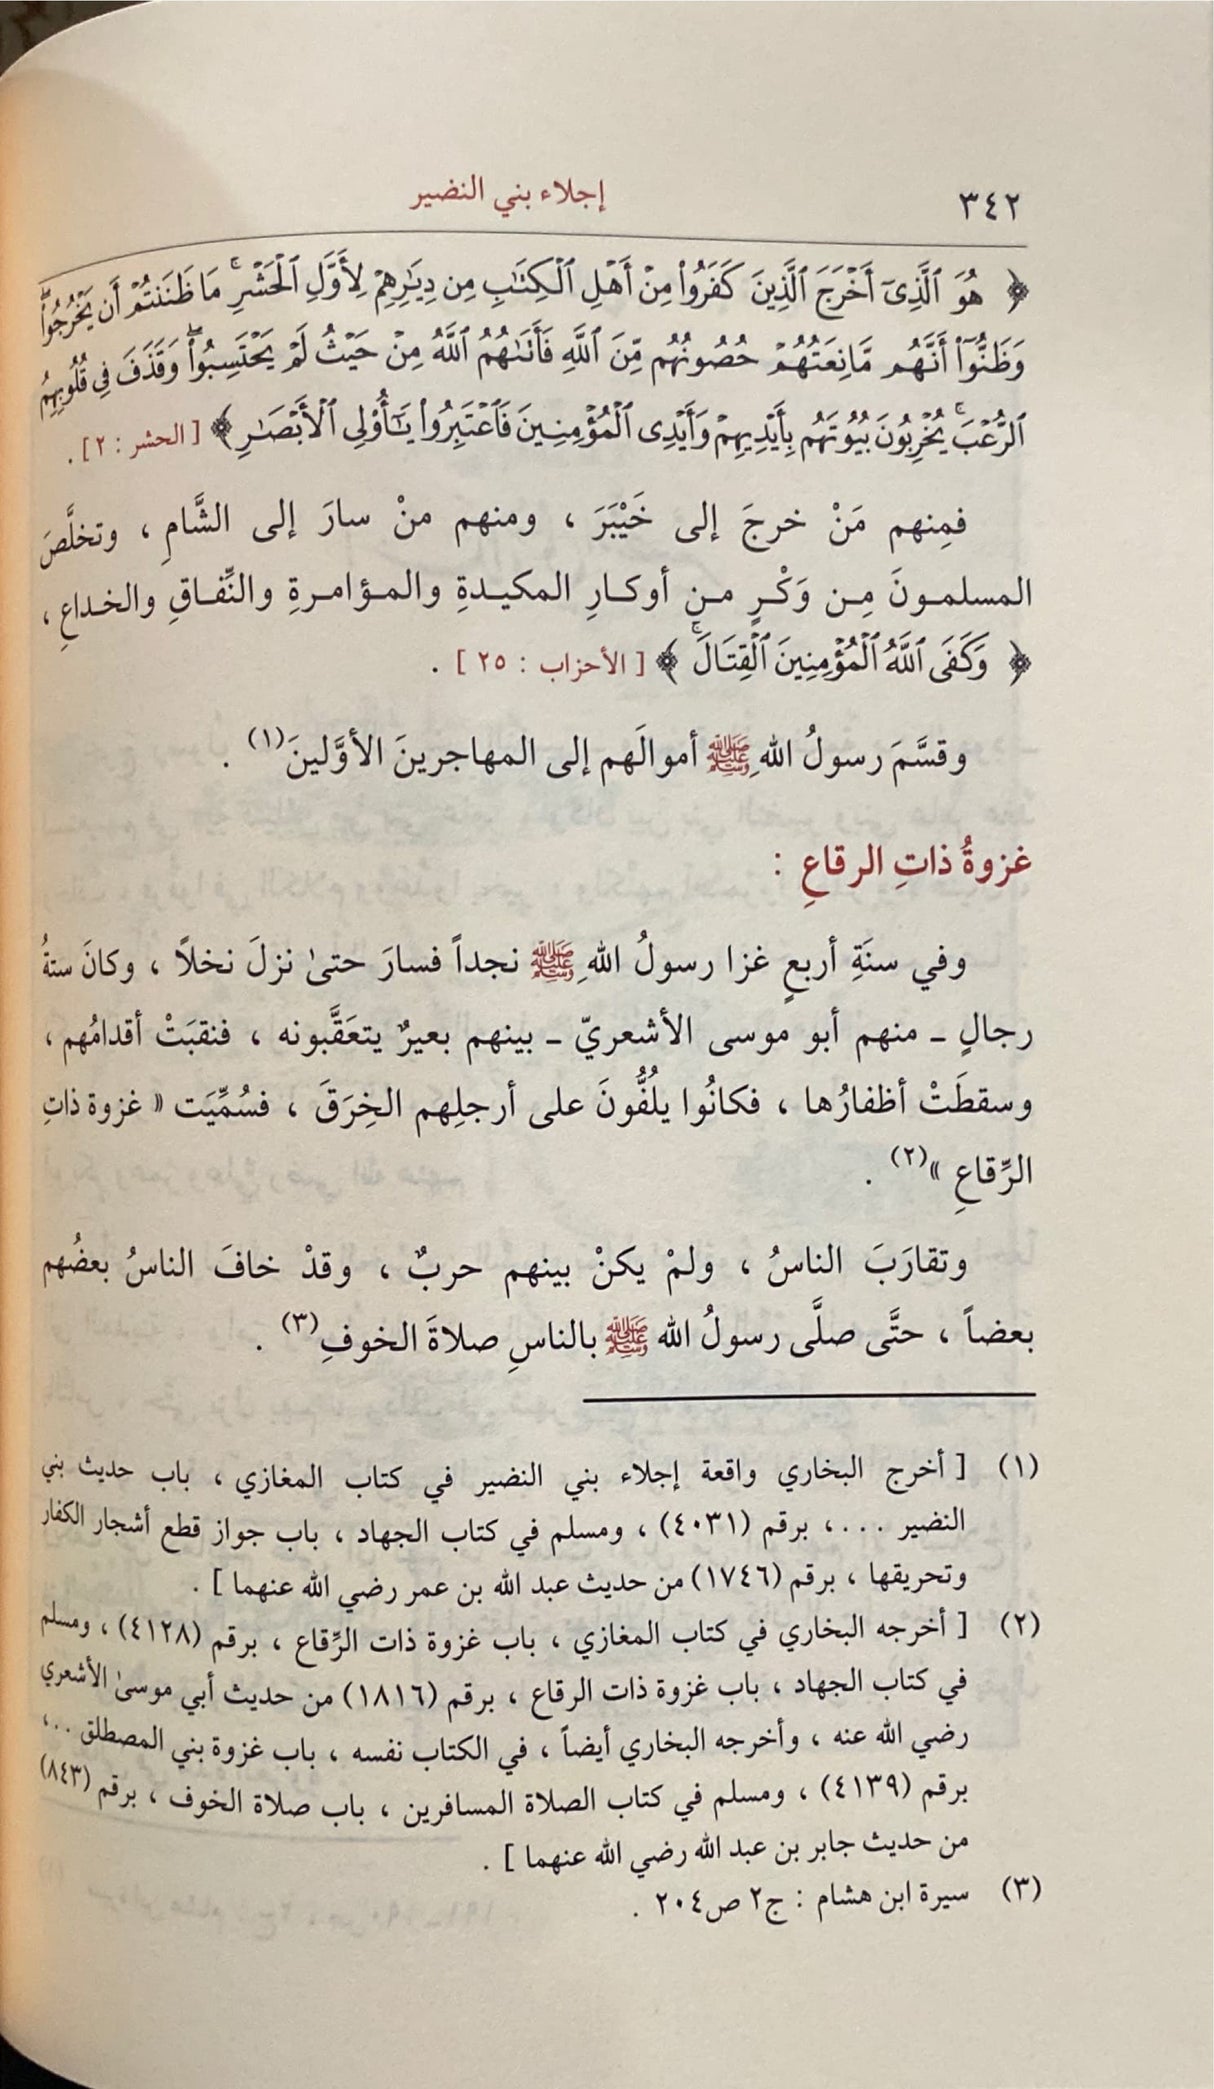 ٣٤٢
إجلاء بني النضير
﴿ هُوَ ٱلَّذِىٓ أَخْرَجَ ٱلَّذِينَ كَفَرُوا۟ مِنْ أَهْلِ ٱلْكِتَٰبِ مِن دِيَٰرِهِمْ لِأَوَّلِ ٱلْحَشْرِ ۚ مَا ظَنَنتُمْ أَن يَخْرُجُوا۟ ۖ
وَظَنُّوٓا۟ أَنَّهُم مَّانِعَتُهُمْ حُصُونُهُم مِّنَ ٱللَّهِ فَأَتَىٰهُمُ ٱللَّهُ مِنْ حَيْثُ لَمْ يَحْتَسِبُوا۟ ۖ وَقَذَفَ فِى قُلُوبِهِمُ
ٱلرُّعْبَ ۚ يُخْرِبُونَ بُيُوتَهُم بِأَيْدِيهِمْ وَأَيْدِى ٱلْمُؤْمِنِينَ فَٱعْتَبِرُوا۟ يَٰٓأُو۟لِى ٱلْأَبْصَٰرِ ﴾ [ الحشر : ٢ ] .
فمِنهم مَنْ خرجَ إلى خَيْبَرَ ، ومنهم منْ سارَ إلى الشَّامِ ، وتخلَّصَ
المسلمونَ مِن وَكْرٍ من أوكارِ المكيدةِ والمؤامرةِ والنِّفاقِ والخداعِ ،
﴿ وَكَفَى ٱللَّهُ ٱلْمُؤْمِنِينَ ٱلْقِتَالَ ۚ ﴾ [ الأحزاب : ٢٥ ] .
وقسَّمَ رسولُ اللهِ ﷺ أموالَهم إلى المهاجرينَ الأوَّلينَ(١) .
غزوةُ ذاتِ الرقاعِ :
وفي سنَةِ أربعٍ غزا رسولُ اللهِ ﷺ نجداً فسارَ حتىٰ نزلَ نخلاً ، وكانَ ستةُ
رجالٍ ـ منهم أبو موسى الأشعريّ ـ بينهم بعيرٌ يتعَقَّبونه ، فنقبَتْ أقدامُهم ،
وسقطَتْ أظفارُها ، فكانُوا يلُفُّونَ على أرجلِهم الخِرَقَ ، فسُمِّيَت « غزوة ذاتِ
الرِّقاعِ »(٢) .
وتقارَبَ الناسُ ، ولمْ يكنْ بينهم حربٌ ، وقدْ خافَ الناسُ بعضُهم
بعضاً ، حتَّى صلَّى رسولُ الله ﷺ بالناسِ صلاةَ الخوفِ(٣) .
(١) [ أخرج البخاري واقعة إجلاء بني النضير في كتاب المغازي ، باب حديث بني
النضير ...، برقم (٤٠٣١) ، ومسلم في كتاب الجهاد ، باب جواز قطع أشجار الكفار
وتحريقها ، برقم (١٧٤٦) من حديث عبد الله بن عمر رضي الله عنهما ] .
(٢) [ أخرجه البخاري في كتاب المغازي ، باب غزوة ذات الرِّقاع ، برقم (٤١٢٨) ، ومسلم
في كتاب الجهاد ، باب غزوة ذات الرقاع ، برقم (١٨١٦) من حديث أبي موسىٰ الأشعري
رضي الله عنه ، وأخرجه البخاري أيضاً ، في الكتاب نفسه ، باب غزوة بني المصطلق ...،
برقم (٤١٣٩) ، ومسلم في كتاب الصلاة المسافرين ، باب صلاة الخوف ، برقم (٨٤٣)
من حديث جابر بن عبد الله رضي الله عنهما ] .
(٣) سيرة ابن هشام : ج٢ ص٢٠٤ .